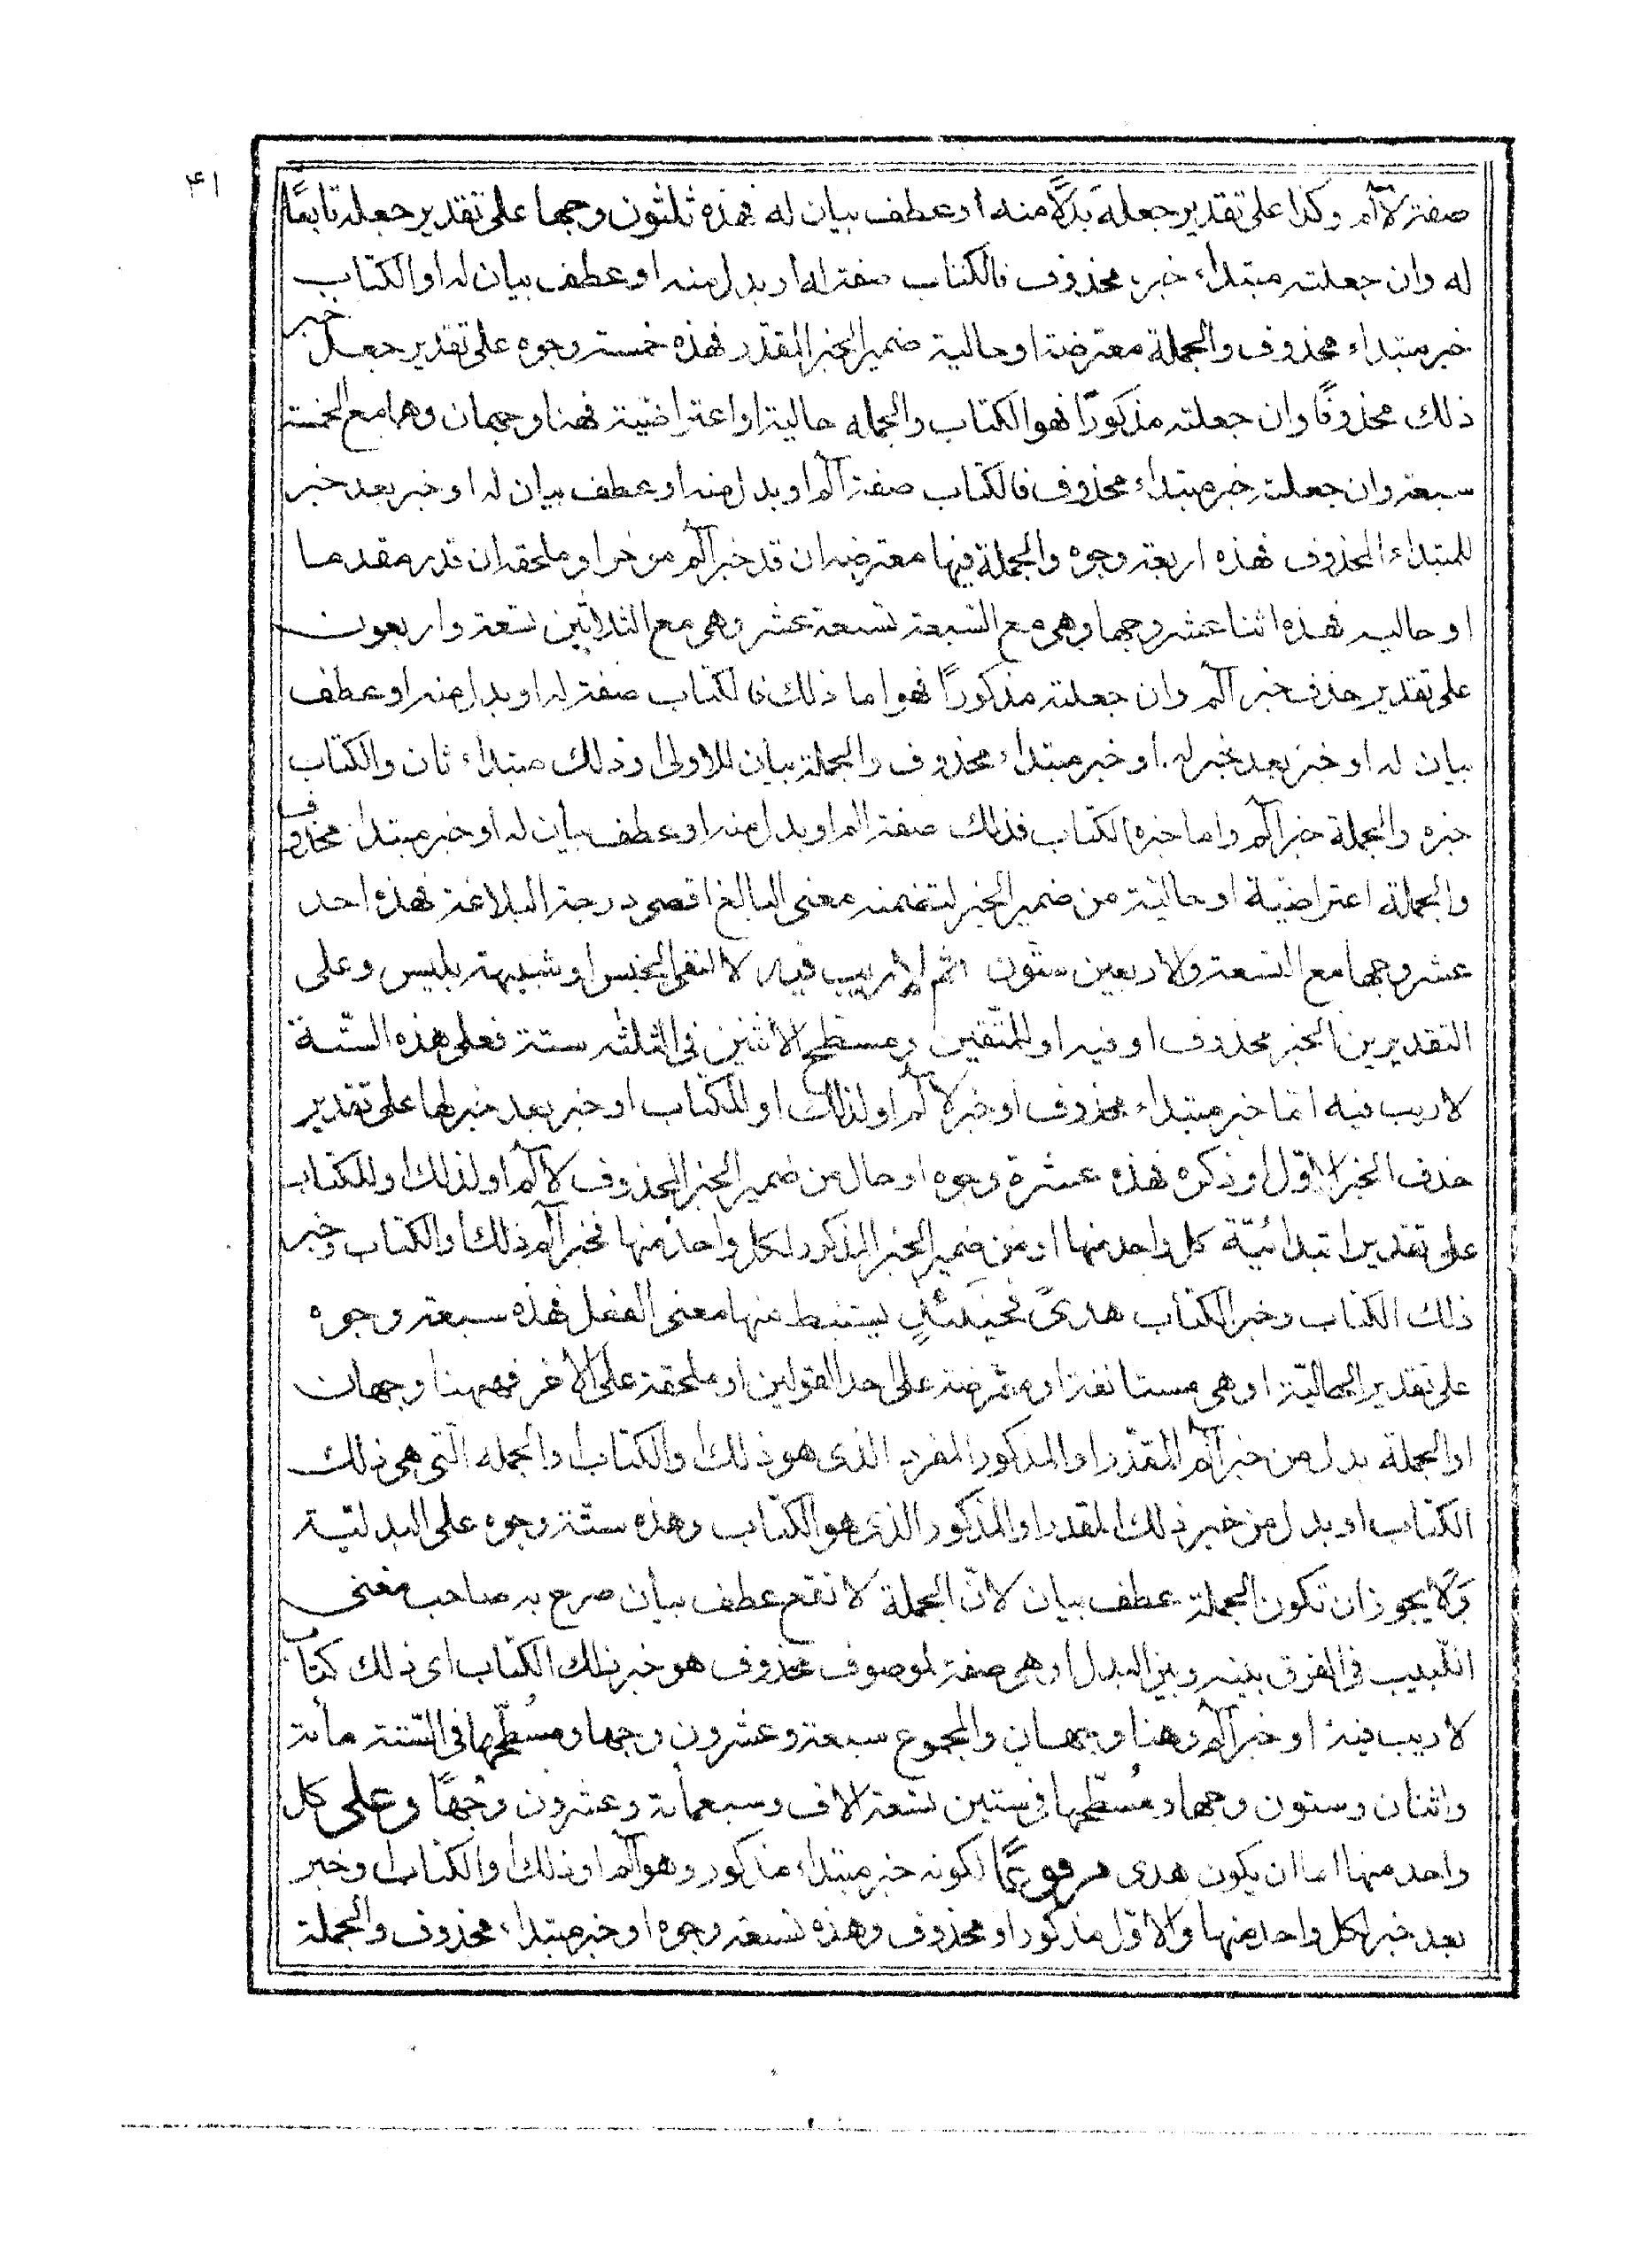 ۴۱
صفة لآلم وكذا على تقدير جعله بدلًا منه او عطف بيان له فهذه ثلثون وجها على تقدير جعله تابعًا
له وان جعلته مبتداء خبره محذوف فالكتاب صفة له او بدل منه او عطف بيان له او الكتاب
خبر مبتداء محذوف والجملة معترضة او حالية ضمير الخبر المقدّر فهذه خمسة وجوه على تقدير جعل خبر
ذلك محذوفًا وان جعلته مذكورًا فهو الكتاب والجمله حالية او اعتراضيّة فهنا وجهان وهما مع الخمسة
سبعة وان جعلته خبر مبتداء محذوف فالكتاب صفة آلم او بدل منه او عطف بيان له او خبر بعد خبر
للمبتداء المحذوف فهذه اربعة وجوه والجملة فيها معترضه ان قدّ خبر آلم موخرا وملحقه ان قدر مقدما
او حاليه فهذه اثنا عشر وجها وهى مع السّبعة تسعة عشر وهى مع الثلاثين تسعة واربعون
على تقدير حذف خبر آلم وان جعلته مذكورًا فهو اما ذلك فالكتاب صفة له او بدل منه او عطف
بيان له او خبر بعد خبر له او خبر مبتداء محذوف والجملة بيان للاولى او ذلك مبتداء ثان والكتاب
خبره والجملة خبر آلم واما خبره الكتاب فذلك صفة الم او بدل منه او عطف بيان له او خبر مبتداء محذوف
والجملة اعتراضيّة او حاليّة من ضمير الخبر لتضمنه معنى البالغ اقصى درجة البلاغة فهذه احد
عشر وجها مع التسعة والاربعين ستّون ثم لا ريب فيه لا لنفى الجنس او شبيهة بليس وعلى
التقديرين الخبر محذوف او فيه او للمتّقين ومسطّح الاثنين فى الثلثه ستة فعلى هذه السّتّة
لا ريب فيه امّا خبر مبتداء محذوف او خبر لآلم او لذلك او للكتاب او خبر بعد خبر لها على تقدير
حذف الخبر الاوّل او ذكره فهذه عشرة وجوه او حال من ضمير الخبر المحذوف لآلم او لذلك او للكتاب
على تقدير ابتدائيّة كل واحد منها او من ضمير الخبر المذكور لكل واحد منها فخبر آلم ذلك او الكتاب وخبر
ذلك الكتاب وخبر الكتاب هدىً فحينئذٍ يستنبط منها معنى الفعل فهذه سبعة وجوه
على تقدير الحاليّة او هى مستانفة او معترضة على احد القولين او ملحقة على الآخر فههنا وجهان
او الجملة بدل من خبر آلم المقدّر او المذكور المفرد الذى هو ذلك او الكتاب او الجمله الّتى هى ذلك
الكتاب او بدل من خبر ذلك المقدر او المذكور الذى هو الكتاب وهذه ستّة وجوه على البدليّة
ولا يجوز ان تكون الجملة عطف بيان لانّ الجملة لا تقع عطف بيان صرح به صاحب مغنى
اللّبيب فى الفرق بينه وبين البدل او هى صفة لموصوف محذوف هو خبر ذلك الكتاب اى ذلك كتاب
لا ريب فيه او خبر آلم وهنا وجهان والمجموع سبعة وعشرون وجها ومسُطّحها فى السّتّة مأىة
واثنان وستون وجها ومُسطّحها فى ستين تسعة الاف وسبعمأىة وعشرون وجهًا وعلى كل
واحد منها اما ان يكون هدى مرفوعًا لكونه خبر مبتداء مذكور وهو آلم او ذلك او الكتاب او خبر
بعد خبر لكل واحد منها والاوّل مذكور او محذوف وهذه تسعة وجوه او خبر مبتداء محذوف والجملة